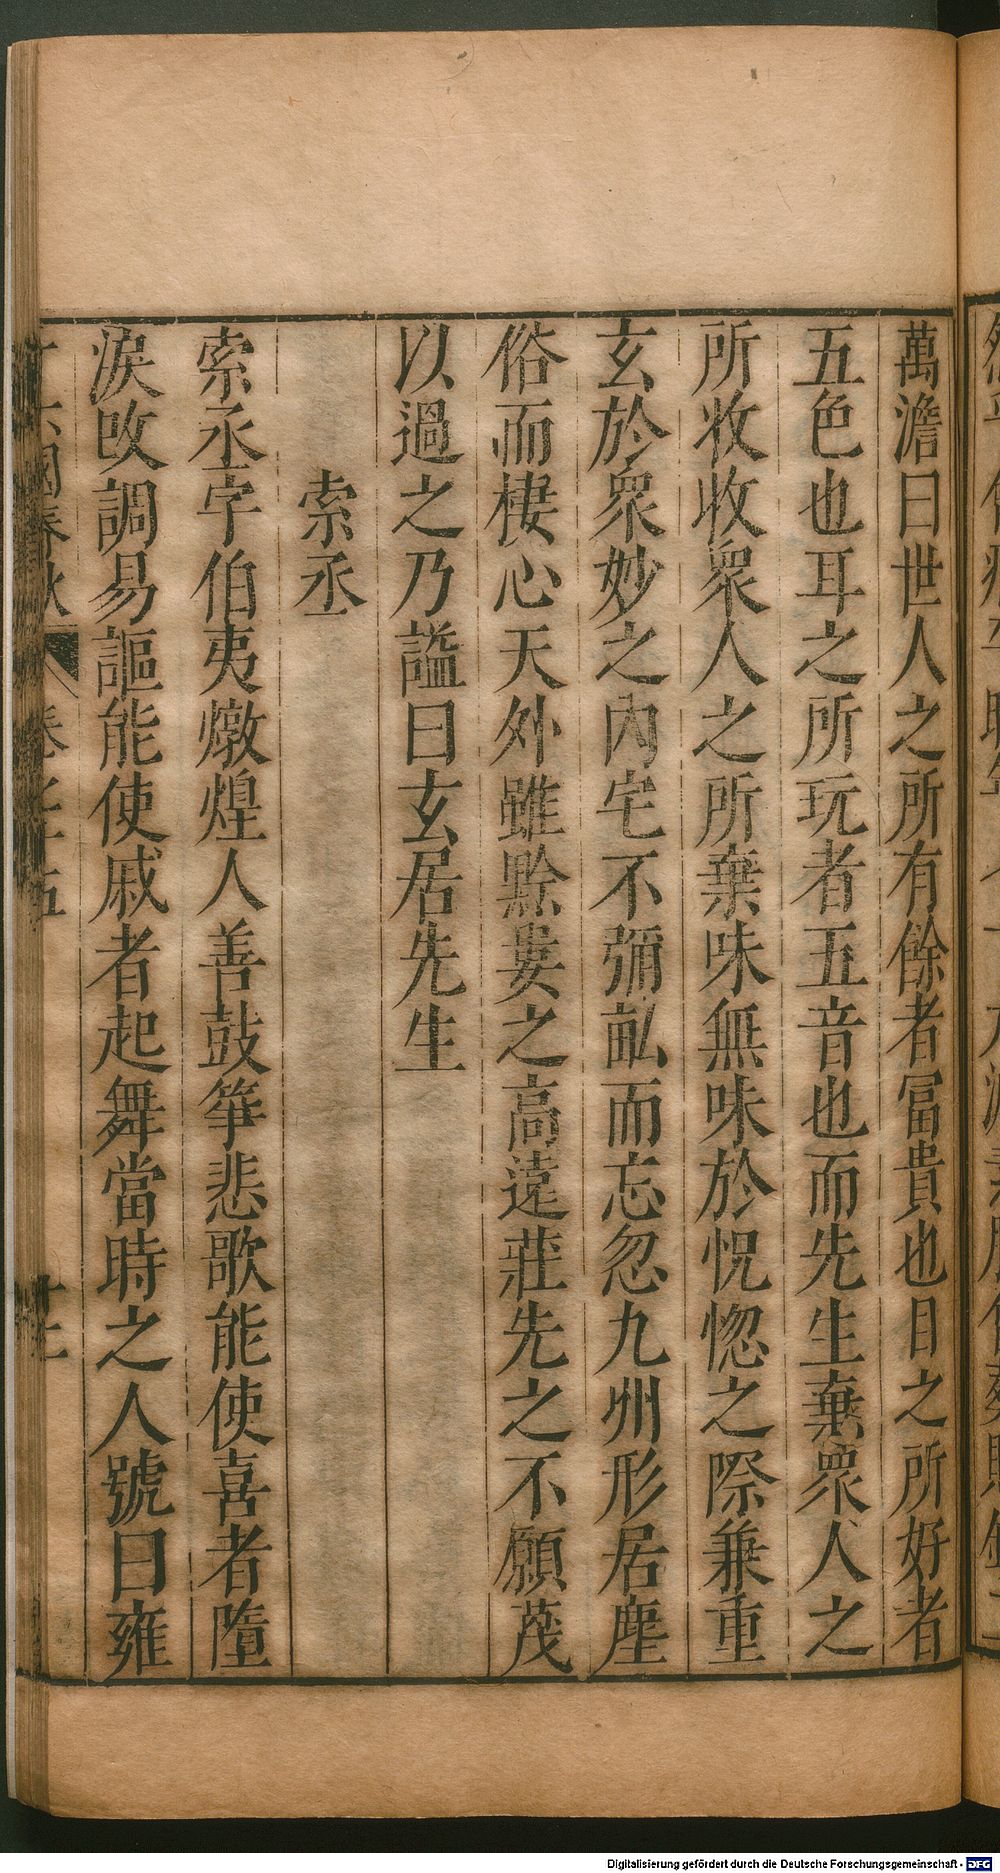 萬澹曰世人之所有餘者冨貴也目之所好者
五色也耳之所玩者五音也而先生棄衆人之
所收收衆人之所棄味無味於怳惚之際兼重
玄於衆妙之內宅不彌畝而忘忽九州形居塵
俗而棲心天外雖黔婁之高遠莊先之不願茂
以過之乃謚曰玄居先生
索丞
索丞字伯夷燉煌人善鼓箏悲歌能使喜者墮
淚改調易謳能使戚者起舞當時之人號曰雍
十六國春秋 卷七十五
Digitalisierung gefördert durch die Deutsche Forschungsgemeinschaft - DFG